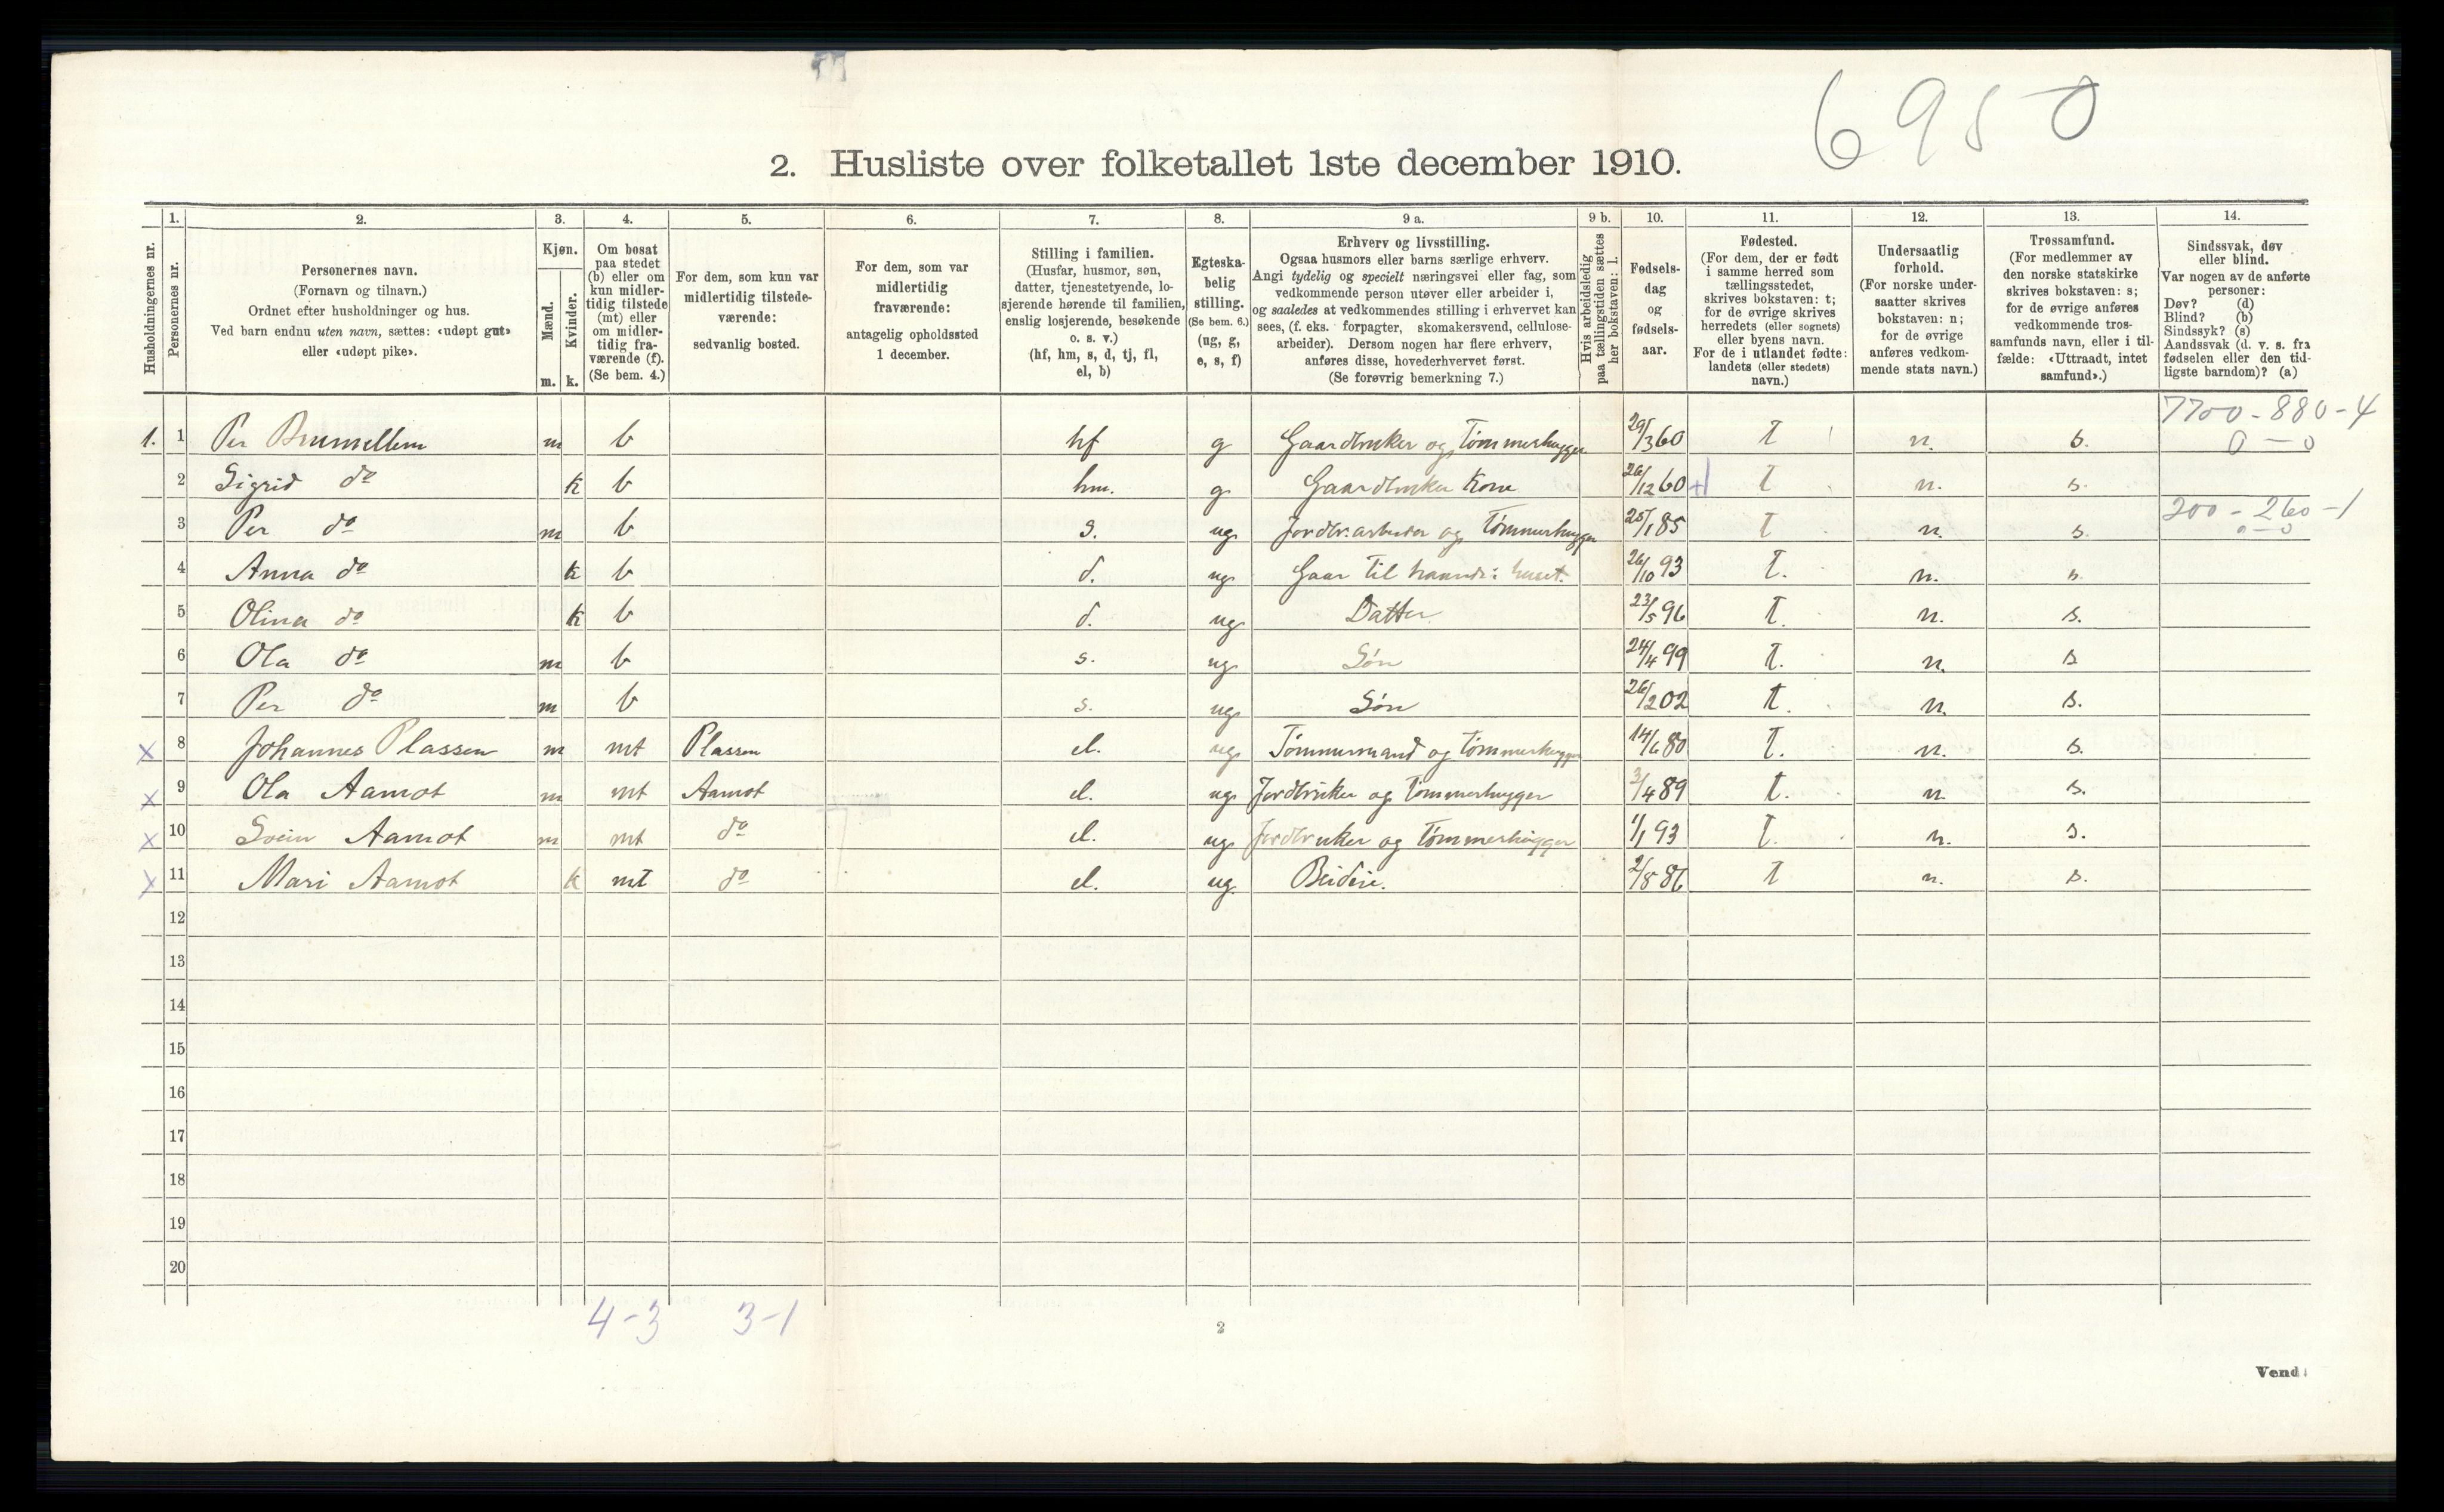 6950
2. Husliste over folketallet 1ste december 1910.
Husholdningernes nr.
1.
Personernes nr.
2.
Personernes navn.
(Fornavn og tilnavn.)
Ordnet efter husholdninger og hus.
Ved barn endnu uten navn, sættes: «udøpt gut»
eller «udøpt pike».
3.
Kjøn.
Mænd.
m.
Kvinder.
k.
4.
Om bosat
paa stedet
(b) eller om
kun midler-
tidig tilstede
(mt) eller
om midler-
tidig fra-
værende (f).
(Se bem. 4.)
5.
For dem, som kun var
midlertidig tilstede-
værende:
sedvanlig bosted.
6.
For dem, som var
midlertidig
fraværende:
antagelig opholdssted
1 december.
7.
Stilling i familien.
(Husfar, husmor, søn,
datter, tjenestetyende, lo-
sjerende hørende til familien,
enslig losjerende, besøkende
o. s. v.)
(hf, hm, s, d, tj, fl,
el, b)
8.
Egteska-
belig
stilling.
(Se bem. 6.)
(ug, g,
e, s, f)
9 a.
Erhverv og livsstilling.
Ogsaa husmors eller barns særlige erhverv.
Angi tydelig og specielt næringsvei eller fag, som
vedkommende person utøver eller arbeider i,
og saaledes at vedkommendes stilling i erhvervet kan
sees, (f. eks. forpagter, skomakersvend, cellulose-
arbeider). Dersom nogen har flere erhverv,
anføres disse, hovederhvervet først.
(Se forøvrig bemerkning 7.)
9 b.
Hvis arbeidsledig
paa tællingstiden sættes
her bokstaven: l.
10.
Fødsels-
dag
og
fødsels-
aar.
11.
Fødested.
(For dem, der er født
i samme herred som
tællingsstedet,
skrives bokstaven: t;
for de øvrige skrives
herredets (eller sognets)
eller byens navn.
For de i utlandet fødte:
landets (eller stedets)
navn.)
12.
Undersaatlig
forhold.
(For norske under-
saatter skrives
bokstaven: n;
for de øvrige
anføres vedkom-
mende stats navn.)
13.
Trossamfund.
(For medlemmer av
den norske statskirke
skrives bokstaven: s;
for de øvrige anføres
vedkommende tros-
samfunds navn, eller i til-
fælde: «Uttraadt, intet
samfund».)
14.
Sindssvak, døv
eller blind.
Var nogen av de anførte
personer:
Døv? (d)
Blind? (b)
Sindssyk? (s)
Aandssvak (d. v. s. fra
fødselen eller den tid-
ligste barndom)? (a)
7700-880-4
0-0
1. 1 Per m b hf g Gaardbruker og Tømmerhugger 29/3 60 t n. s.
2 Sigrid do k b hm. g Gaardbruker Kone 26/12 60 t n. s.
3 Per do m b s. ug Jordbr.arbeider og Tømmerhugger 25/1 85 t n. s. 200-260-1
0-0
4 Anna do k b d. ug Gaar til haande i huset. 26/10 93 t. n. s.
5 Olina do k b d. ug Datter 23/5 96 t. n. s.
6 Ola do m b s. ug Søn 24/4 99 t. n. s
7 Per do m b s. ug Søn 26/2 02 t. n. s.
x 8 Johannes Plassen m mt Plassen el. ug Tømmermand og Tømmerhugger 14/6 80 t. n. s.
x 9 Ola Aamot m mt Aamot el. ug Jordbruker og Tømmerhugger 3/4 89 t. n s.
x 10 Svein Aamot m mt do el. ug Jordbruker og Tømmerhugger 1/1 93 t. n. s.
x 11 Mari Aamot k mt do el. ug. 2/8 86 t n. s.
12
13
14
15
16
17
18
19
20
4-3 3-1
2
Vend!